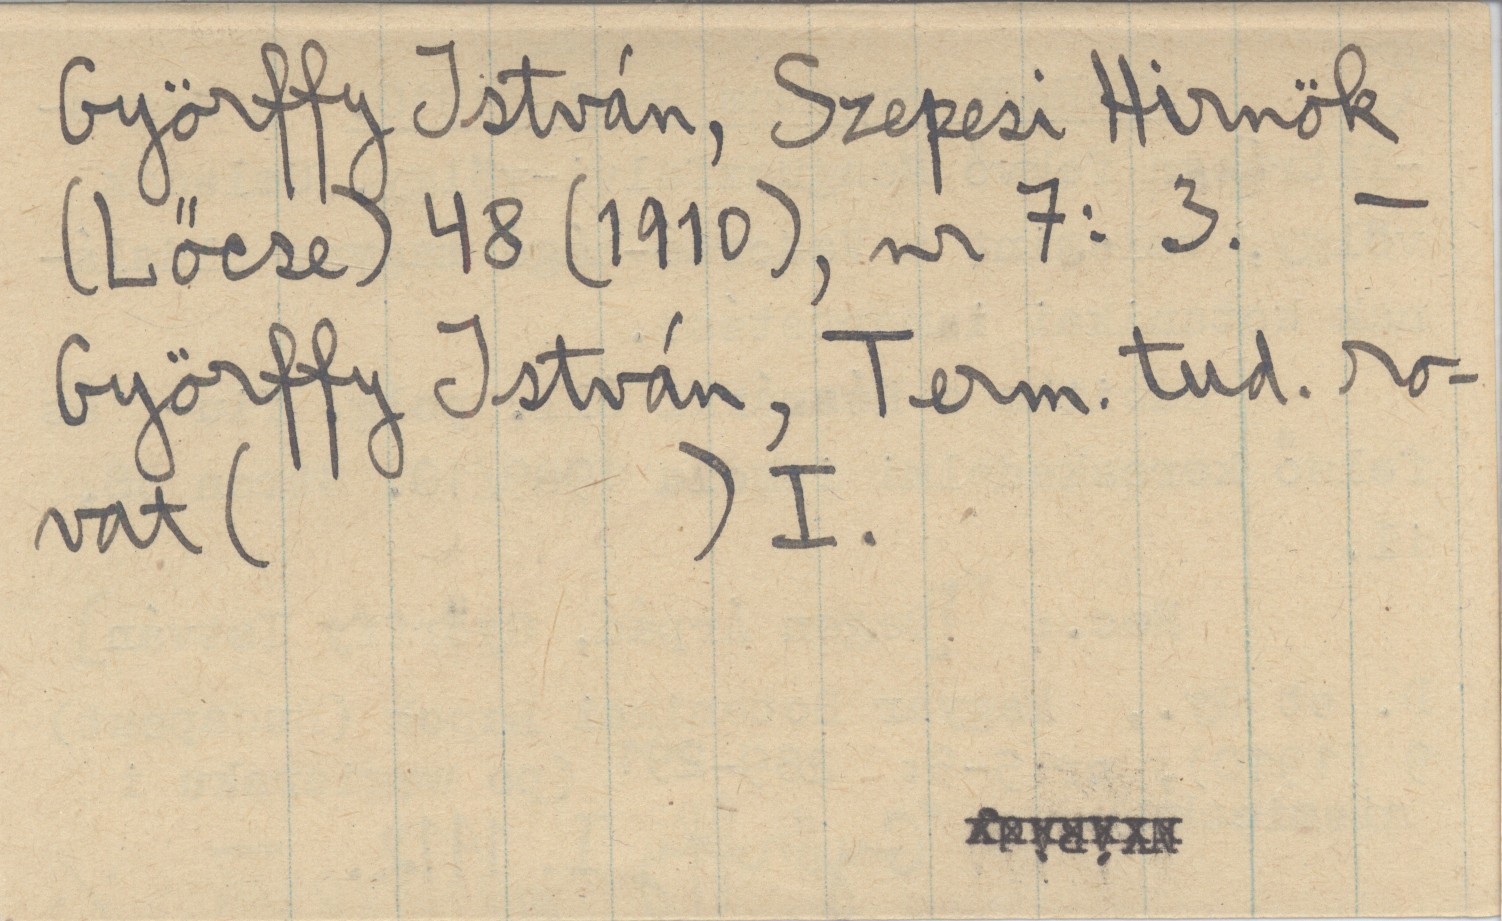 Györffy István, Szepesi Hirnök
(Lőcse) 48 (1910), nr 7: 3. —
Györffy István, Term. tud. ro-
vat (                    ) I.